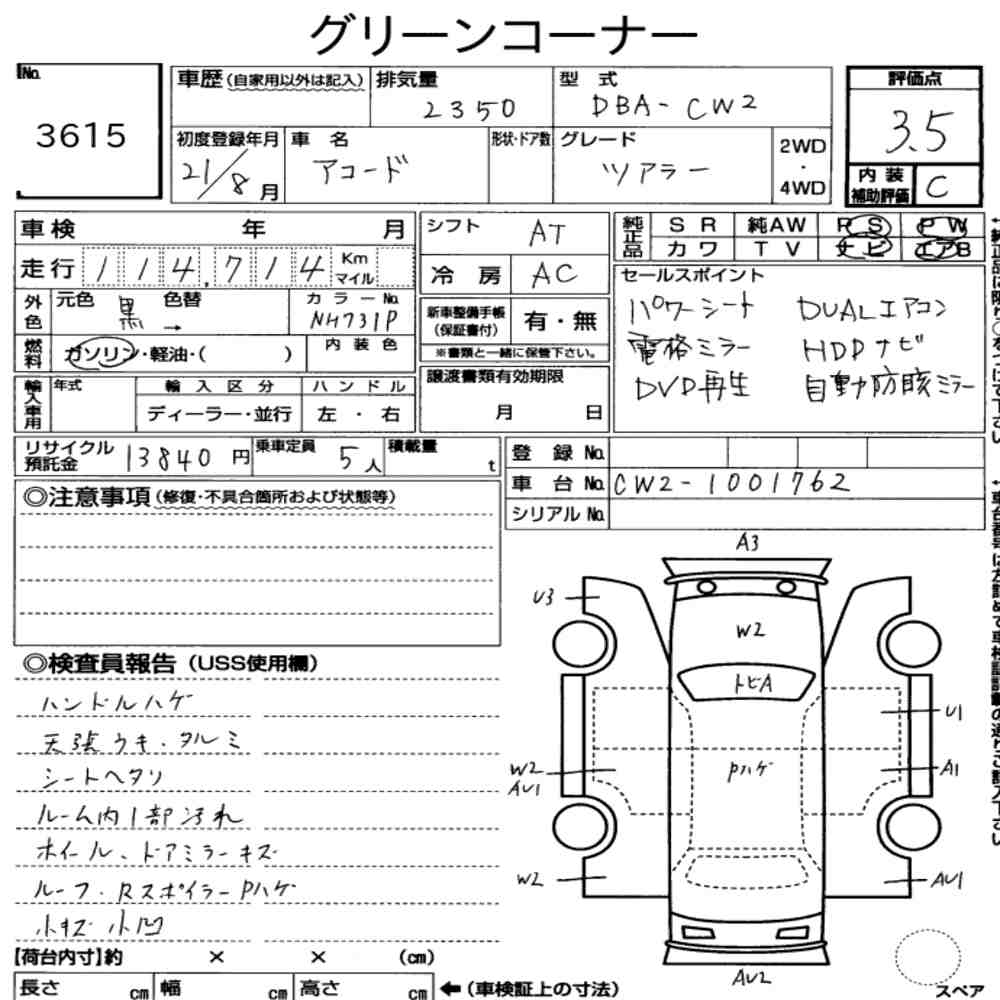 グリーンコーナー
No.
3615
車歴(自家用以外は記入)
排気量
2350
型 式
DBA-CW2
評価点
3.5
初度登録年月
21/8月
車 名
アコード
形状・ドア数
グレード
ツアラー
2WD
・
4WD
内 装
補助評価
C
車検 年 月
シフト
AT
純正品
SR 純AW PS PW
カワ TV ナビ エアB
走行 114,714 Km マイル
冷 房
AC
セールスポイント
パワーシート DUALエアコン
電格ミラー HDDナビ
DVD再生 自動防眩ミラー
外色
元色 黒 色替
→
カラーNo.
NH731P
新車整備手帳
(保証書付)
有・無
※書類と一緒に保管下さい。
燃料
ガソリン・軽油・( )
内 装 色
輸入車用
年式
輸 入 区 分
ハ ン ド ル
ディーラー・並行
左 ・ 右
譲渡書類有効期限
月 日
リサイクル
預託金
13840 円
乗車定員
5人
積載量
t
登 録 No.
車 台 No. CW2-1001762
シリアル No.
◎注意事項(修復・不具合箇所および状態等)
◎検査員報告(USS使用欄)
ハンドルハゲ
天張ウキ・タルミ
シートヘタリ
ルーム内1部汚れ
ホイール、ドアミラーキズ
ルーフ・RスポイラーPハゲ
小キズ小凹
A3
U3
W2
トビA
U1
W2
AU1
Pハゲ
A1
W2
AU1
AU2
スペア
【荷台内寸】約 × × (cm)
長さ cm 幅 cm 高さ cm
←(車検証上の寸法)